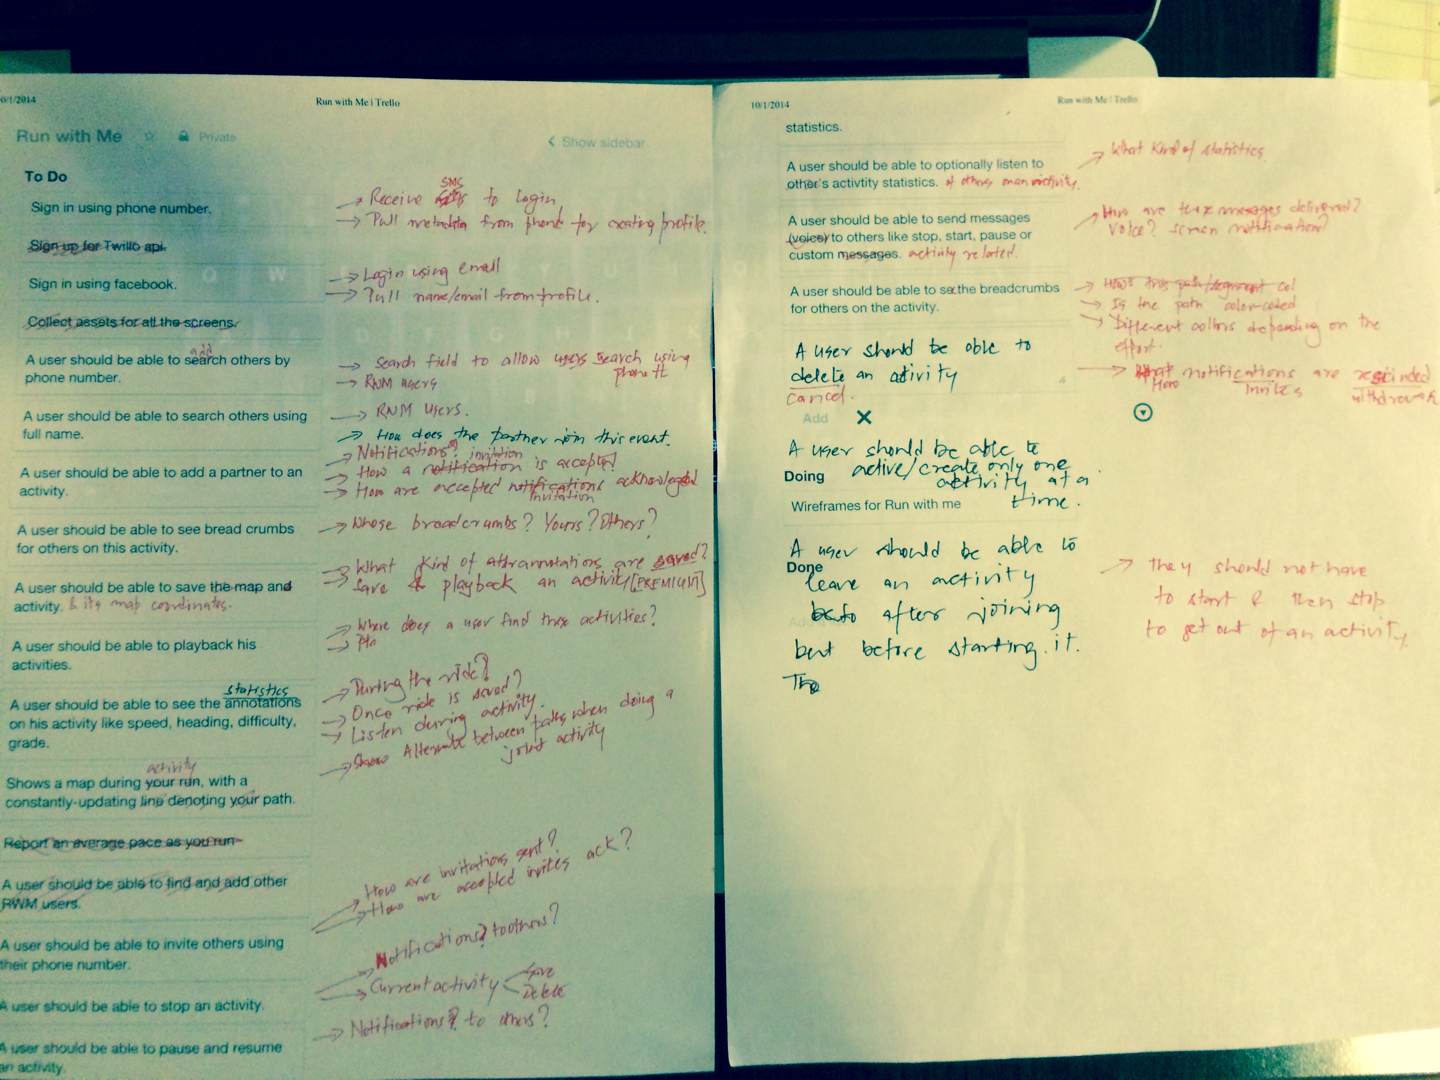 10/1/2014
Run with Me | Trello
Run with Me
Private
< Show sidebar
To Do
Sign in using phone number.
→ Receive SMS to login
→ Pull metadata from phone for creating profile.
Sign up for Twillo api.
Sign in using facebook.
→ Login using email
→ Pull name/email from profile.
Collect assets for all the screens.
add
A user should be able to search others by
phone number.
→ Search field to allow users search using
phone #
→ RWM users
A user should be able to search others using
full name.
→ RWM users.
→ How does the partner join this event.
A user should be able to add a partner to an
activity.
→ Notifications? invitation
→ How a notification is accepted?
→ How are accepted notifications acknowledged
Invitation
A user should be able to see bread crumbs
for others on this activity.
→ Whose breadcrumbs? Yours? Others?
A user should be able to save the map and
activity. & its map coordinates.
→ What kind of annotations are saved?
→ Save & playback an activity [PREMIUM]
A user should be able to playback his
activities.
→ Where does a user find these activities?
statistics
A user should be able to see the annotations
on his activity like speed, heading, difficulty,
grade.
→ During the ride?
→ Once ride is saved?
→ Listen during activity.
→ Show Alternate between paths when doing a
joint activity
activity
Shows a map during your run, with a
constantly-updating line denoting your path.
Report an average pace as you run
A user should be able to find and add other
RWM users.
A user should be able to invite others using
their phone number.
→ How are invitations sent?
→ How are accepted invites ack?
A user should be able to stop an activity.
→ Notifications? to others?
→ Current activity < Save
Delete
A user should be able to pause and resume
an activity.
→ Notifications? to others?
10/1/2014
Run with Me | Trello
statistics.
A user should be able to optionally listen to
other's activtity statistics. of others on an activity.
→ What kind of statistics
A user should be able to send messages
(voice) to others like stop, start, pause or
custom messages. activity related.
→ How are these messages delivered?
Voice? Screen notification?
A user should be able to see the breadcrumbs
for others on the activity.
→ How's this path/segment col
→ Is the path color-coded
→ Different colors depending on the
effort.
A user should be able to
delete an activity
cancel.
→ What notifications are rescinded
How invites withdrawn
4
Add X
A user should be able to
active/create only one
activity at a
time.
Doing
Wireframes for Run with me
A user should be able to
Done
leave an activity
after joining
but before starting it.
The
→ They should not have
to start & then stop
to get out of an activity.